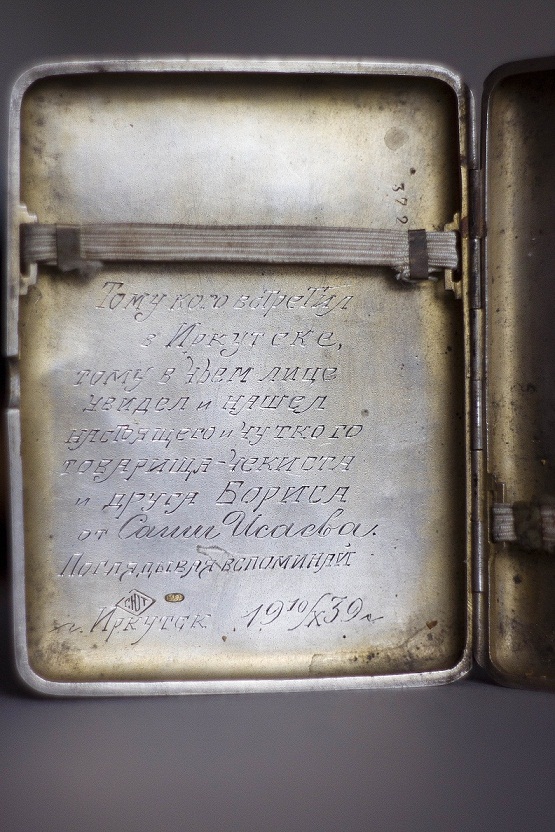 372
Тому кого встретил
в Иркутске,
тому в чьем лице
увидел и нашел
настоящего и чуткого
товарища-чекиста
и друга Бориса
от Саши Исаева.
Поглядывая вспоминай
г. Иркутск 19 10/X 39 г.